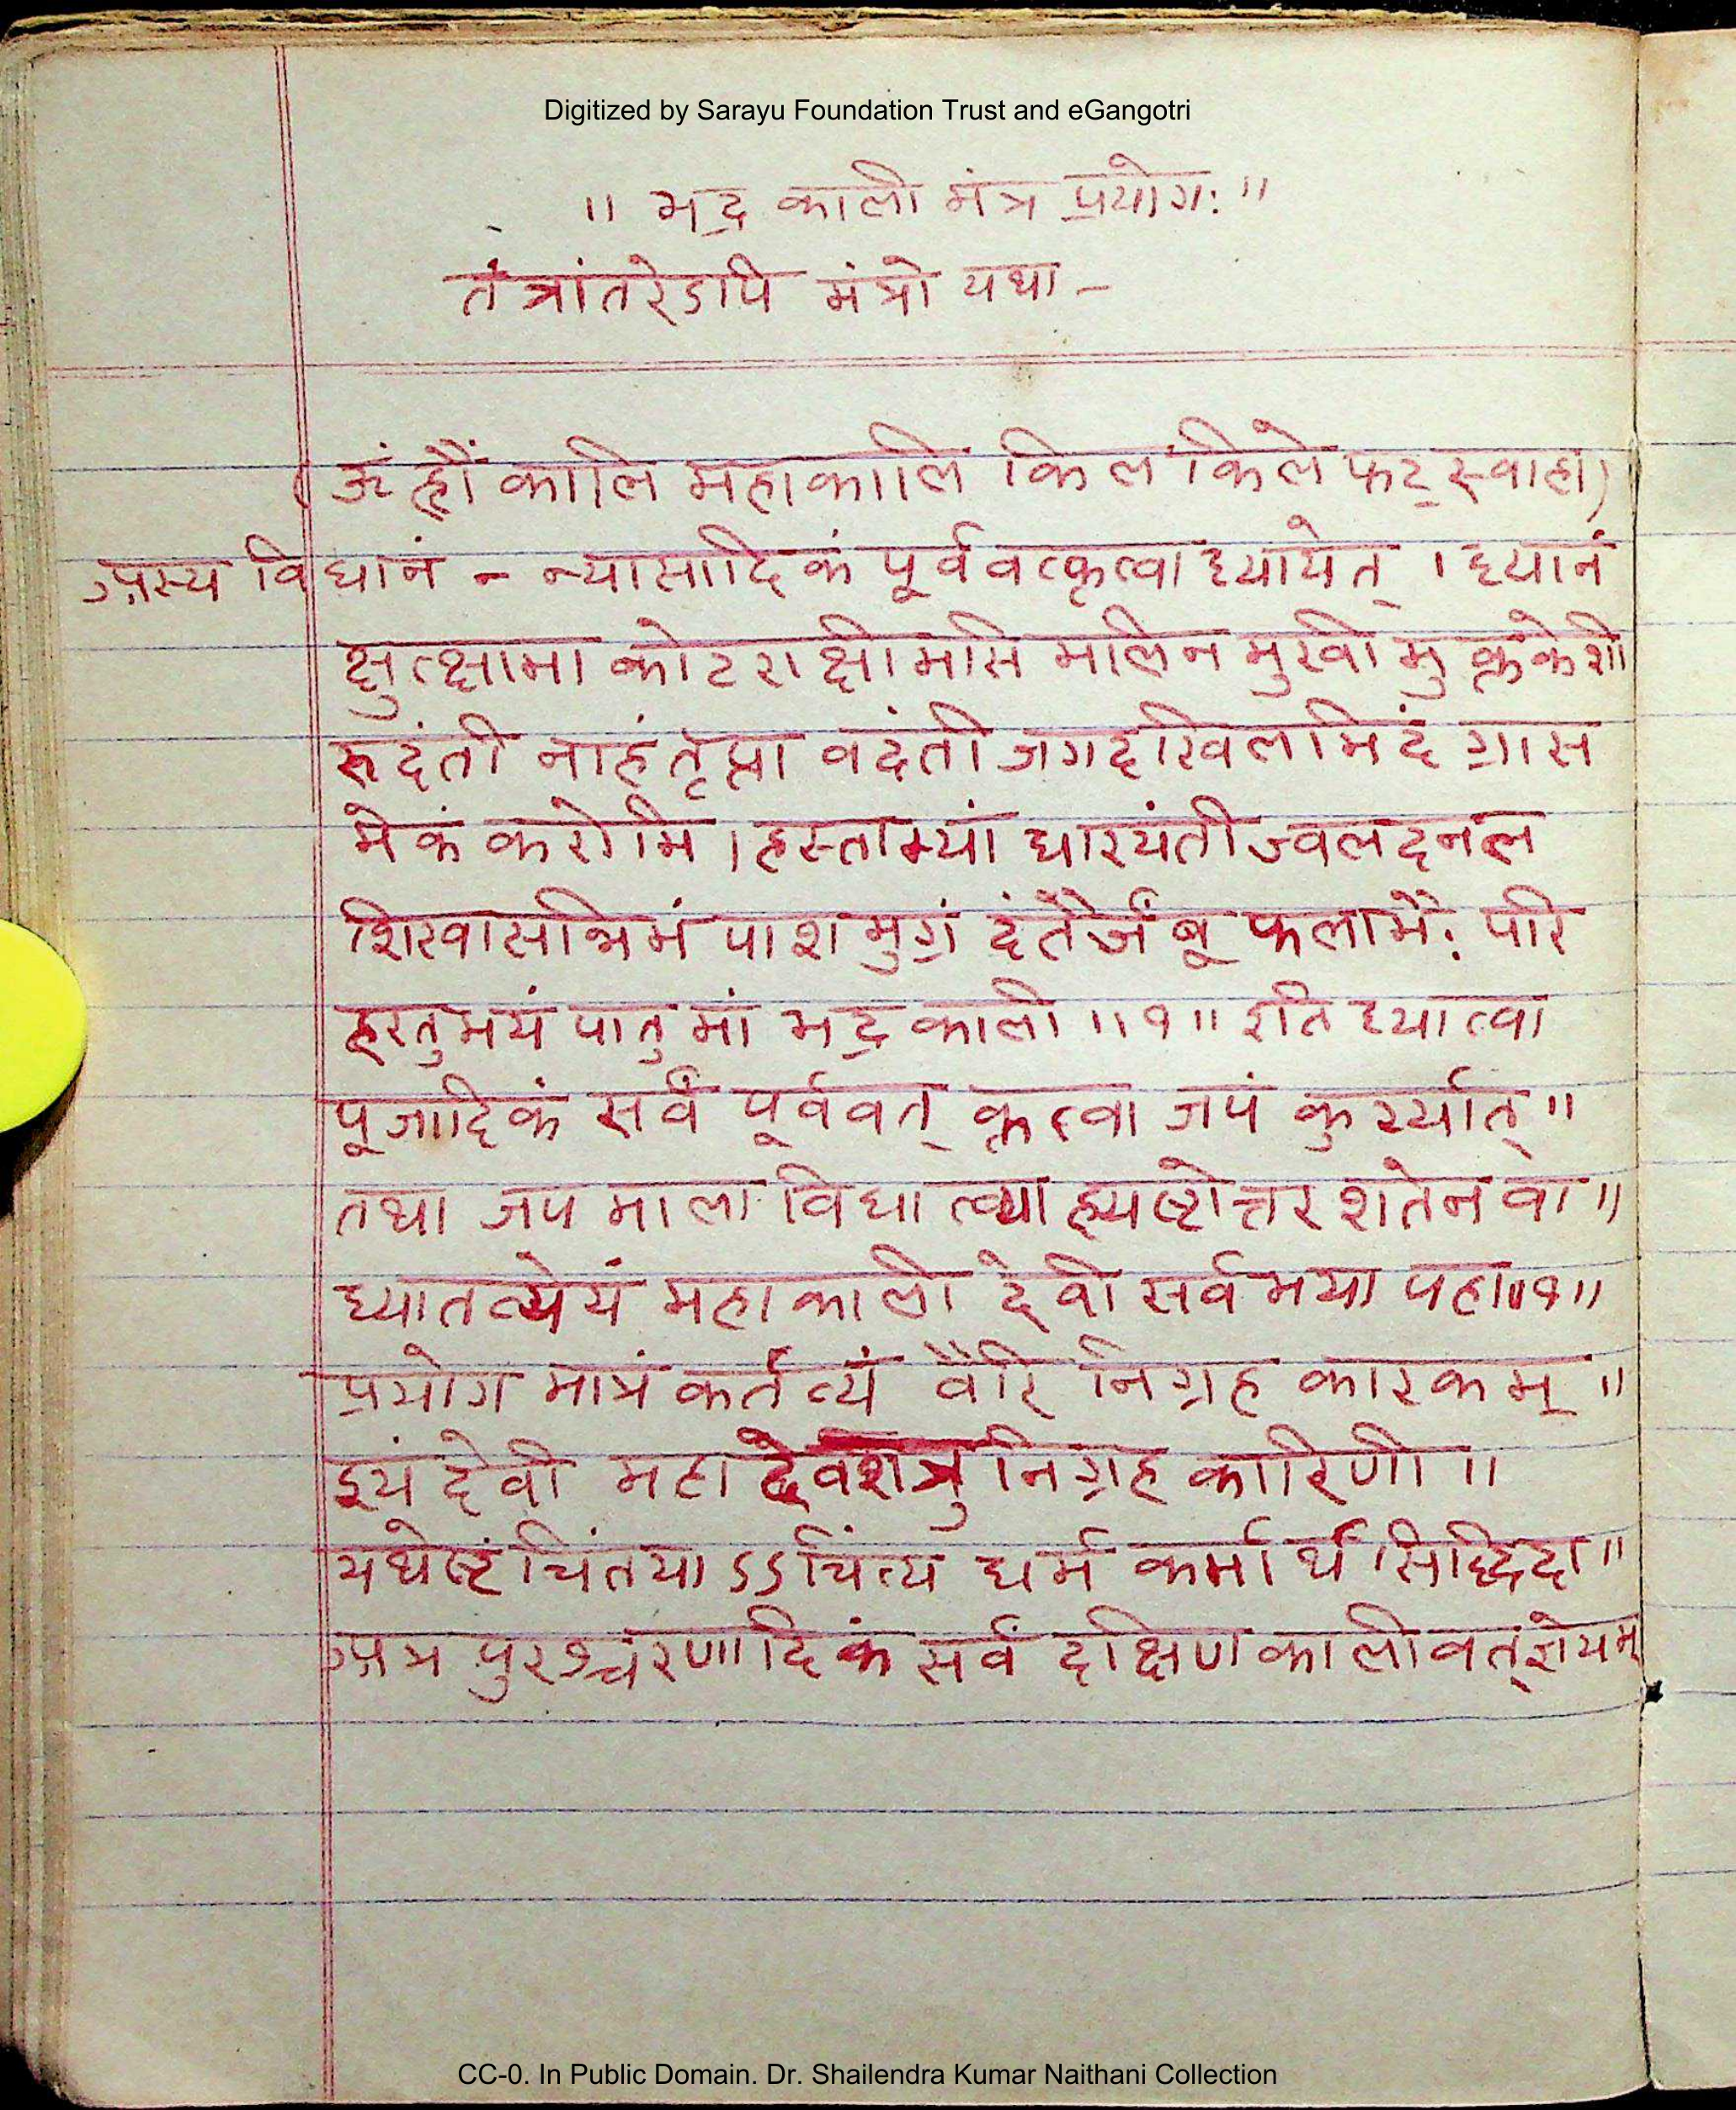 Digitized by Sarayu Foundation Trust and eGangotri
॥ भद्र काली मंत्र प्रयोगः ॥
तंत्रांतरेऽपि मंत्रो यथा —
(ॐ ह्रौं कालि महाकालि किल किले फट् स्वाहा)
अस्य विधानं - न्यासादिकं पूर्ववत्कृत्वा ध्यायेत् । ध्यानं
क्षुत्क्षामा कोटराक्षी मसि मलिन मुखी मुक्तकेशी
रूदंती नाहं तृप्ता वदंती जगदखिलमिदं ग्रास
मेकं करोमि । हस्ताभ्यां धारयंती ज्वलदनल
शिखासन्निभं पाशमुग्रं दंतैर्जंबू फलाभैः परि
हरतु भयं पातु मां भद्र काली ॥१॥ इति ध्यात्वा
पूजादिकं सर्वं पूर्ववत् कृत्वा जपं कुर्य्यात् ॥
तथा जप माला विधा तव्या ह्यष्टोत्तर शतेन वा ॥
ध्यातव्येयं महाकाली देवी सर्व भया पहा ॥१॥
प्रयोग मात्रं कर्तव्यं वैरि निग्रह कारकम् ॥
इयं देवी महा देवशत्रु निग्रह कारिणी ॥
यथेष्टं चिंतयाऽऽचिंत्य धर्म कर्मार्थ सिद्धिदा ॥
अत्र पुरश्चरणादिकं सर्वं दक्षिण कालीवत् ज्ञेयम्
CC-0. In Public Domain. Dr. Shailendra Kumar Naithani Collection